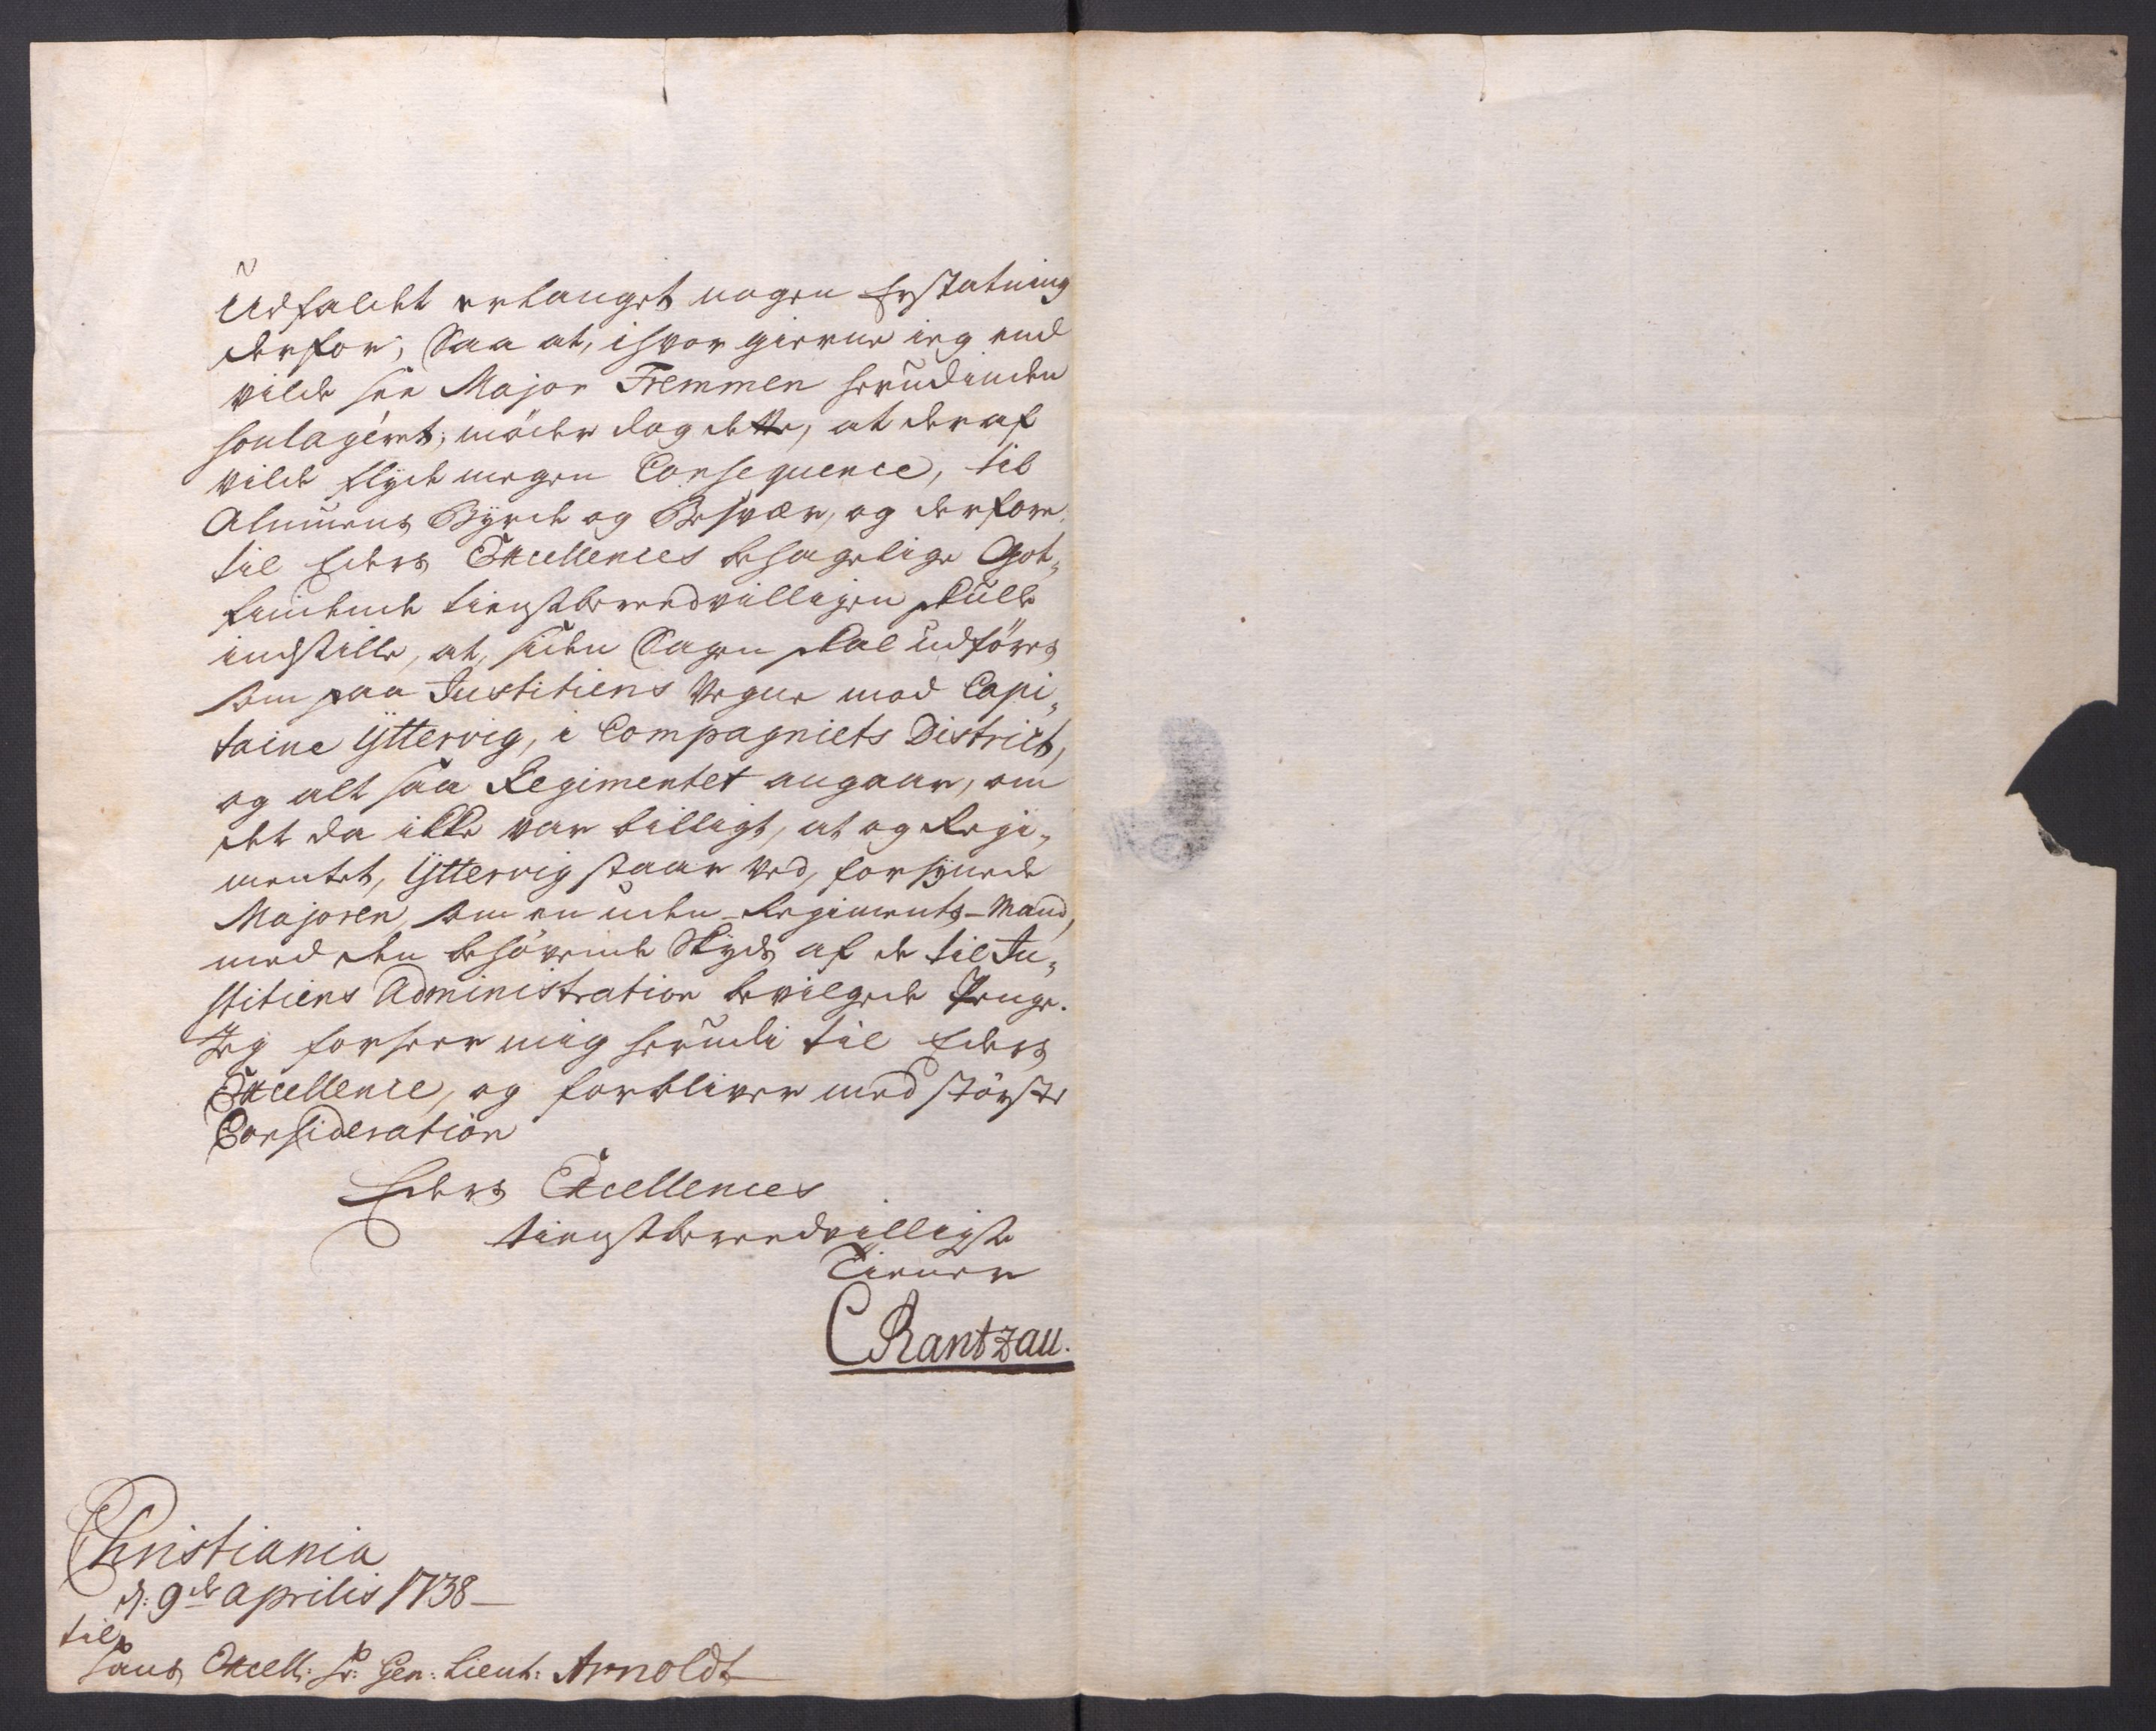 Udfaldet erlanget nogen Erstatning
derfor; Saa at, ihvor gierne ieg end
vilde see Major Fremmen herudinden
soulageret; möder dog dette, at deraf
vilde flyde megen Consequence, til
Almuens Byrde og Besvær, og derfore
til Eders Excellences behagelige Got„
findende tienstberedvilligen skulle
indstille, at, siden Sagen skal udföres
som paa Justitiens Vegne mod Capi„
taine Ÿttervig, i Compagniets District,
og alt saa Regimentet angaar, om
det da ikke var billigt, at og Regi„
mentet, Ÿttervig staar ved, forsÿnede
Majoren, som en uden-Regiments-Mand,
med den behövende Skyds af de til Ju„
stitiens Administration bevilgede Penge.
Jeg forseer mig herudi til Eders
Excellence, og forbliver med störste
Consideration
Eders Excellences
tienstberedvilligste
Tiener
CRantzau.
Christiania
d: 9de Aprilis 1738
til
Hans Excell: Hr: Gen: Lieut: Arnoldt